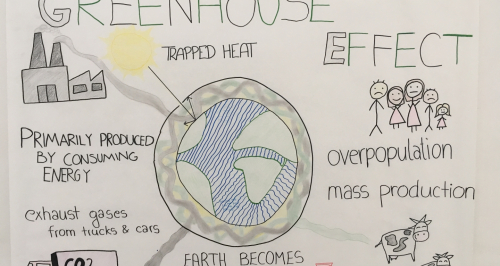 GREENHOUSE
EFFECT
TRAPPED HEAT
PRIMARILY PRODUCED
BY CONSUMING
ENERGY
overpopulation
mass production
exhaust gases
from trucks & cars
CO²
EARTH BECOMES